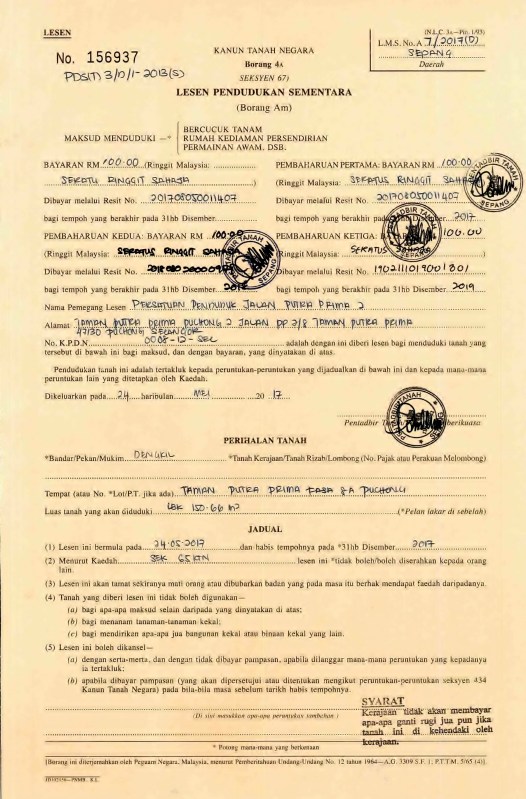 LESEN
(N.L.C. 3A—Pin. 1/93)
L.M.S. No. A 7/2017(D)
SEPANG
Daerah
No. 156937
PDS(T) 3/D/1-2013(S)
KANUN TANAH NEGARA
Borang 4A
SEKSYEN 67)
LESEN PENDUDUKAN SEMENTARA
(Borang Am)
MAKSUD MENDUDUKI —*
BERCUCUK TANAM
RUMAH KEDIAMAN PERSENDIRIAN
PERMAINAN AWAM, DSB.
BAYARAN RM 100.00 (Ringgit Malaysia:
SERATU RINGGIT SAHAJA )
Dibayar melalui Resit No. 201708050011407
bagi tempoh yang berakhir pada 31hb Disember
PEMBAHARUAN PERTAMA: BAYARAN RM 100.00
(Ringgit Malaysia: SERATUS RINGGIT SAHAJA
Dibayar melalui Resit No. 201708050011407
bagi tempoh yang berakhir pada 31hb Disember 2017
PEMBAHARUAN KEDUA: BAYARAN RM 100.00
(Ringgit Malaysia: SERATUS RINGGIT SAHAJA
Dibayar melalui Resit No.
bagi tempoh yang berakhir pada 31hb Disember
PEMBAHARUAN KETIGA: BAYARAN RM 100.00
(Ringgit Malaysia: SERATUS
Dibayar melalui Resit No. 190211019001801
bagi tempoh yang berakhir pada 31hb Disember 2019
Nama Pemegang Lesen PERSATUAN PENDUDUK JALAN PUTRA PRIMA 2
Alamat TAMAN PUTRA PRIMA PUCHONG 2 JALAN PP 2/8 TAMAN PUTRA PRIMA
47130 PUCHONG SELANGOR
No. K.P.D.N. 0008-12-SEL adalah dengan ini diberi lesen bagi menduduki tanah yang
tersebut di bawah ini bagi maksud, dan dengan bayaran, yang dinyatakan di atas.
Pendudukan tanah ini adalah tertakluk kepada peruntukan-peruntukan yang dijadualkan di bawah ini dan kepada mana-mana
peruntukan lain yang ditetapkan oleh Kaedah.
Dikeluarkan pada 24 haribulan MEI 20 17
PENTADBIR TANAH
SEPANG
Pentadbir Tanah
PERIHALAN TANAH
*Bandar/Pekan/Mukim DENGKIL *Tanah Kerajaan/Tanah Rizab/Lombong (No. Pajak atau Perakuan Melombong)
Tempat (atau No. *Lot/P.T. jika ada) TAMAN PUTRA PRIMA FASA 8A PUCHONG
Luas tanah yang akan diduduki LBK 150.66 m2 (*Pelan lakar di sebelah)
JADUAL
(1) Lesen ini bermula pada 24-05-2017 dan habis tempohnya pada *31hb Disember 2017
(2) Menurut Kaedah SEK 65 KTN lesen ini *tidak boleh/boleh diserahkan kepada orang
lain.
(3) Lesen ini akan tamat sekiranya mati orang atau dibubarkan badan yang pada masa itu berhak mendapat faedah daripadanya.
(4) Tanah yang diberi lesen ini tidak boleh digunakan—
(a) bagi apa-apa maksud selain daripada yang dinyatakan di atas;
(b) bagi menanam tanaman-tanaman kekal;
(c) bagi mendirikan apa-apa jua bangunan kekal atau binaan kekal yang lain.
(5) Lesen ini boleh dikansel—
(a) dengan serta-merta, dan dengan tidak dibayar pampasan, apabila dilanggar mana-mana peruntukan yang kepadanya
ia tertakluk;
(b) apabila dibayar pampasan (yang akan dipersetujui atau ditentukan mengikut peruntukan-peruntukan seksyen 434
Kanun Tanah Negara) pada bila-bila masa sebelum tarikh habis tempohnya.
(Di sini masukkan apa-apa peruntukan tambahan.)
SYARAT
Kerajaan tidak akan membayar
apa-apa ganti rugi jua pun jika
tanah ini di kehendaki oleh
kerajaan.
* Potong mana-mana yang berkenaan
[Borang ini diterjemahkan oleh Peguam Negara, Malaysia, menurut Pemberitahuan Undang-Undang No. 12 tahun 1964—A.G. 3309 S.F. 1; P.T.T.M. 5/65 (4)].